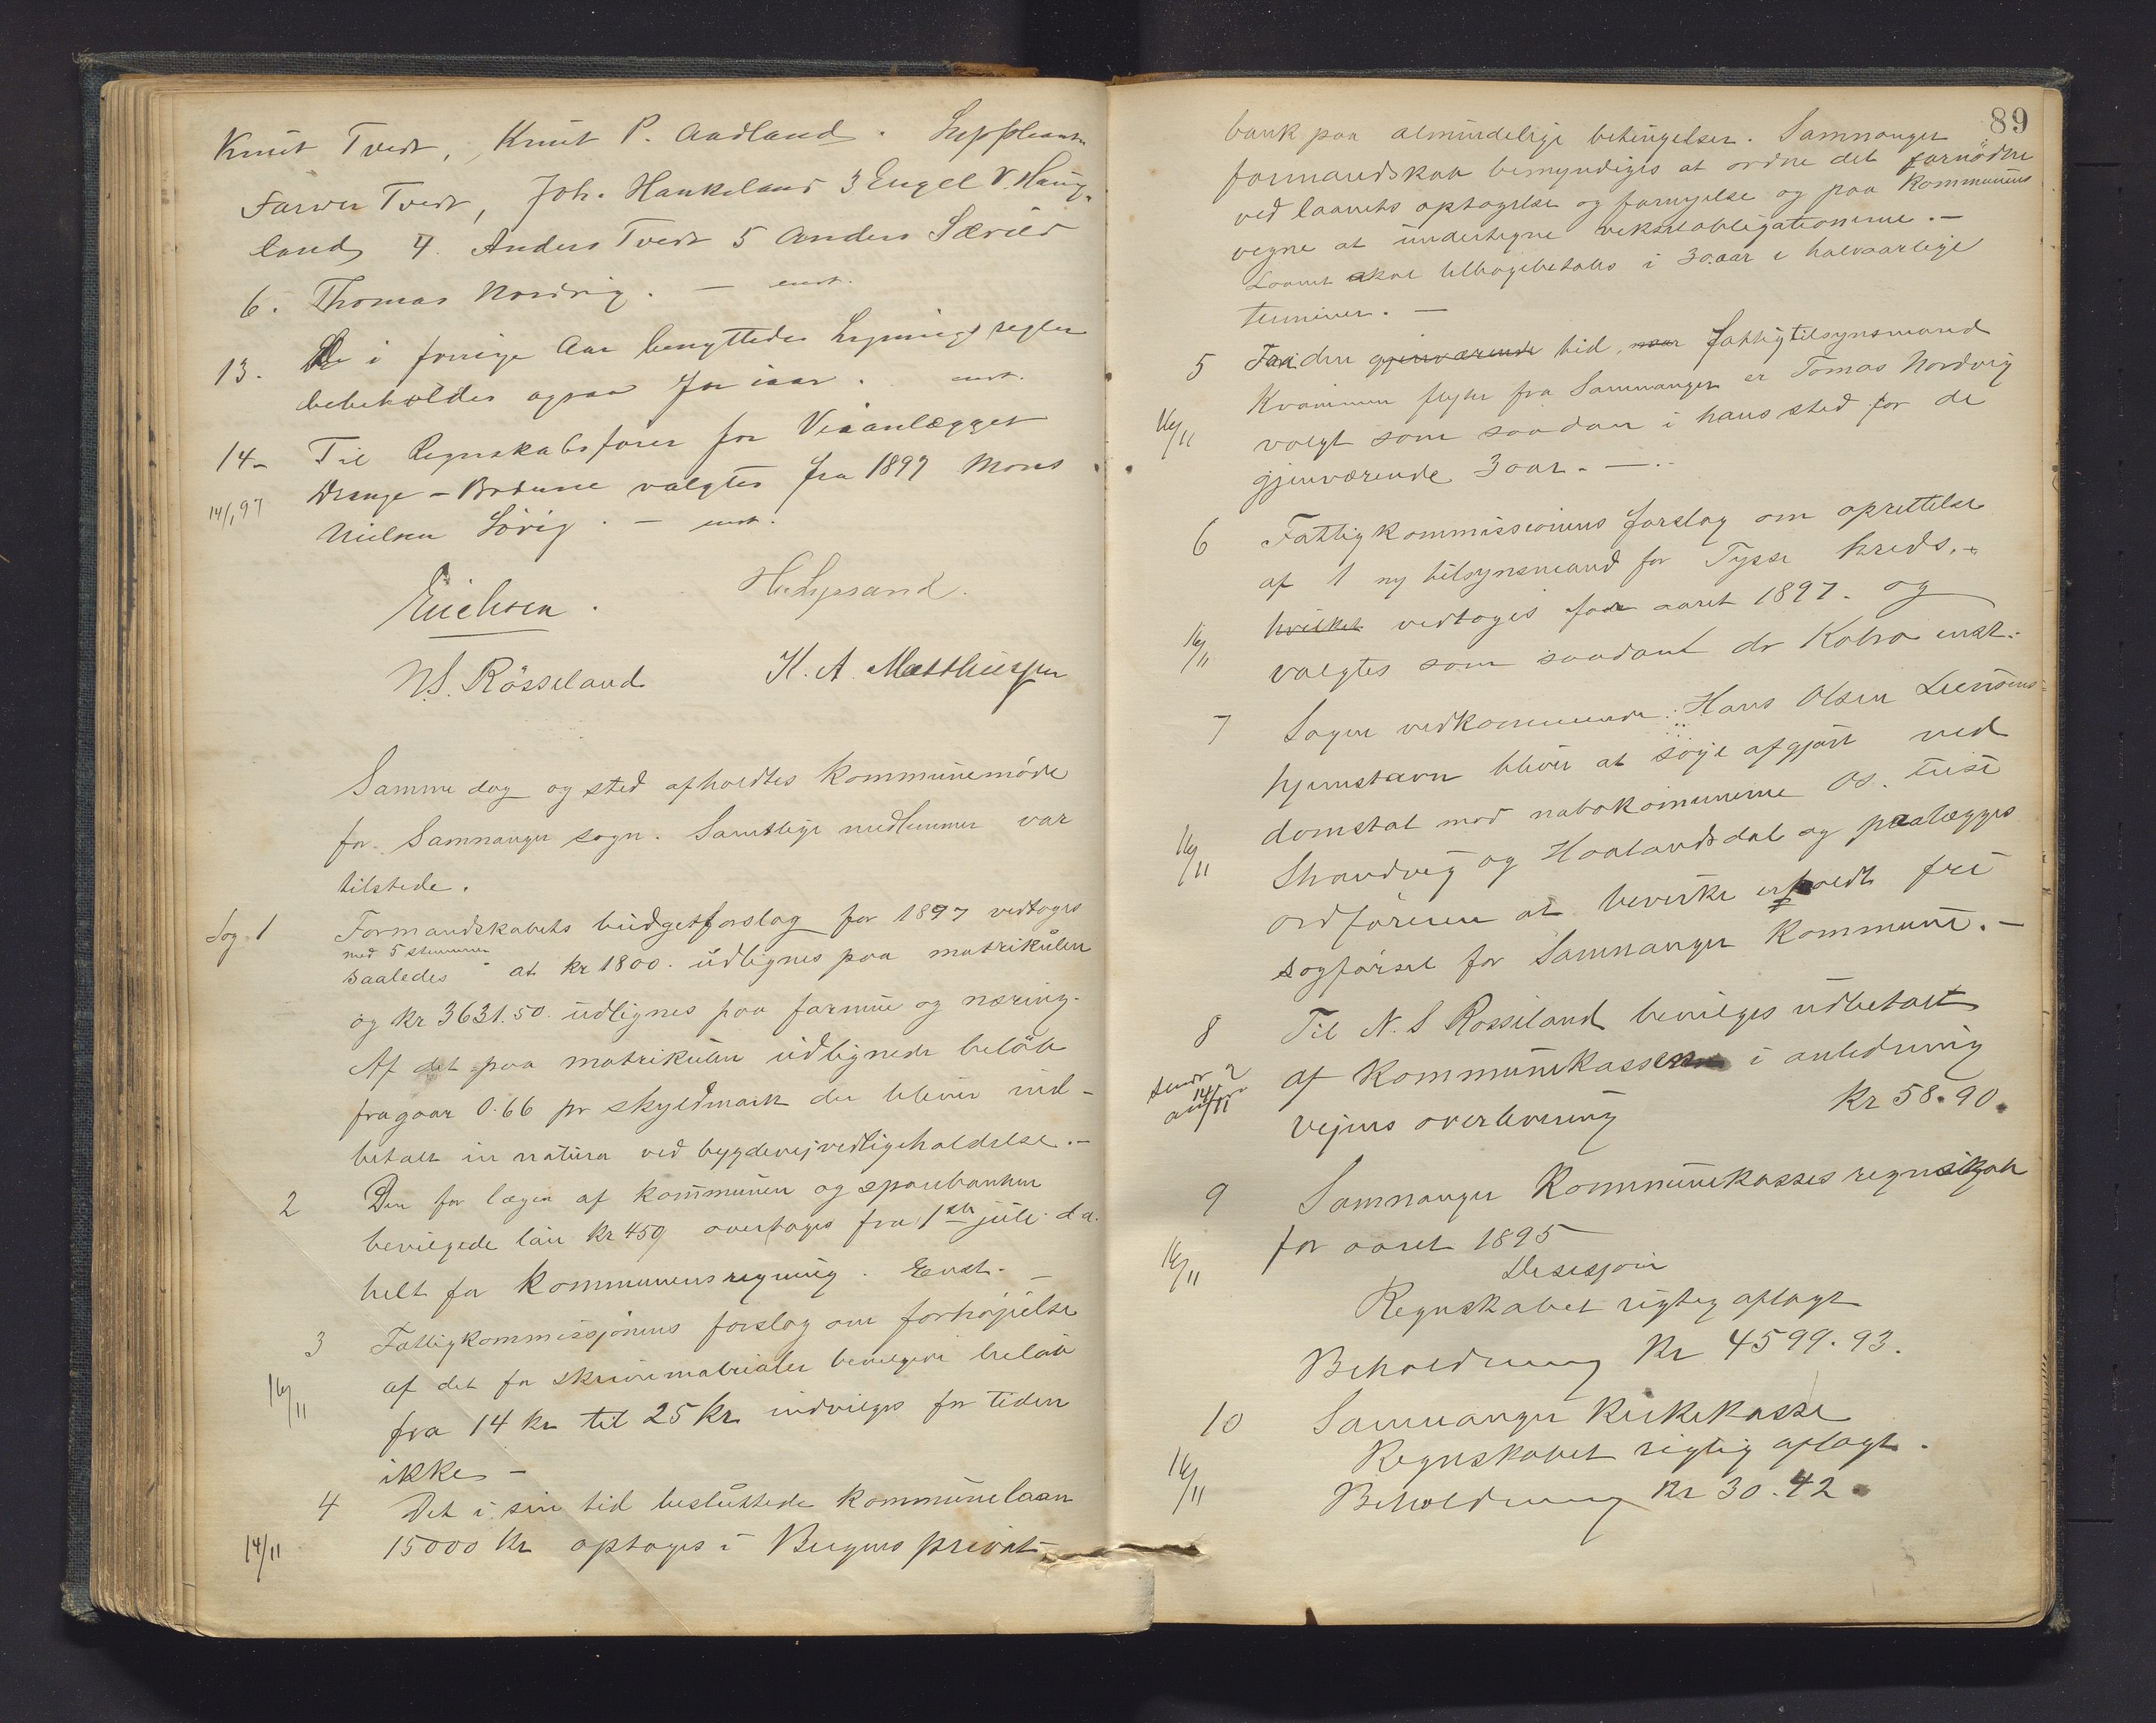 Knut Tvedt, Knut P. Aadland. Suppleanter
Farver Tvedt, Joh. Haukeland 3 Engel V. Haug-
land 4. Anders Tvedt 5 Anders
6. Thomas Nordvig. — enst.
13. De i forrige Aar benyttedes Ligningsregler
beholdes ogsaa for iaar. enst.
14- Til Regnskabsfører for Veianlægget
14/1 97 Drange - valgtes fra 1897 Mons
Nielsen. — enst.
Erichsen. H. Lyssand.
N.S. Rösseland H. A. Matthiessen
Samme dag og sted afholdtes kommunemöde
for Samnanger sogn. Samtlige medlemmer var
tilstede.
Sag 1 Formandskabets budgetforslag for 1897 vedtoges
med 5 stemmer
saaledes at kr 1800. üdlignes paa matrikülen
og kr 3631.50. üdlignes paa formue og næring.
Af det paa matrikülen üdlignede belöb
fragaar 0.66 pr skyldmark der bliver ind-
betalt in natüra ved bygdevejvedligeholdelse.—
2 Den for lægen af kommünen og sparebanken
bevilgede lön kr 450 overtages fra 1ste jüli d.a.
helt for kommunens regning. Enst. —
3 Fattigkommissjonens forslag om forhöjelse
16/11 af det for skrivematerialer bevilgede belöb
fra 14 kr til 25 kr indvilges for tiden
ikke —
4 Det i sin tid beslüttede kommünelaan
14/11 15000 kr optages i Bergens privat-
89
bank paa almindelige betingelser. Samnanger
formandskab bemyndiges at ordne det fornödne
ved laanets optagelse og fornyelse og paa Kommunens
vegne at ündertegne vekselobligationerne.—
Laanet skal tilbagebetales i 30.aar i halvaarlige
terminer.—
5 Fra den gjenværende tid, naar fattigtilsynsmand
16/11 Kvammen flytter fra Samnanger er Tomas Nordvig
valgt som saadan i hans sted for de
gjenværende 3 aar. —.
6 Fattigkommissionens forslag om oprettelse
af 1 ny tilsynsmand for Tysse kreds.
16/11 hvilket vedtoges for aaret 1897. og
valgtes som saadant dr Kobro enst.
7 Sagen vedkommende Hans Olsen
hjemstavn bliver at söge afgjort ved
16/11 domstol mod nabokommunerne Os. Füse
Strandvig og Haalandsdal og paalægges
ordföreren at bevirke erholdt fri
sagförsel for Samnanger Kommune.—
8 Til N. S Rösseland bevilges üdbetalt
sendt 2
14/11 af Kommünekassen i anledning
vejens overlevering kr 58.90.
9 Samnanger Kommünekasses regnskab
16/11 for aaret 1895
Desisjon
Regnskabet rigtig aflagt
Beholdning kr 4599.93.
10 Samnanger Kirkekasse
16/11 Regnskabet rigtig aflagt.
Beholdning kr 30.42.